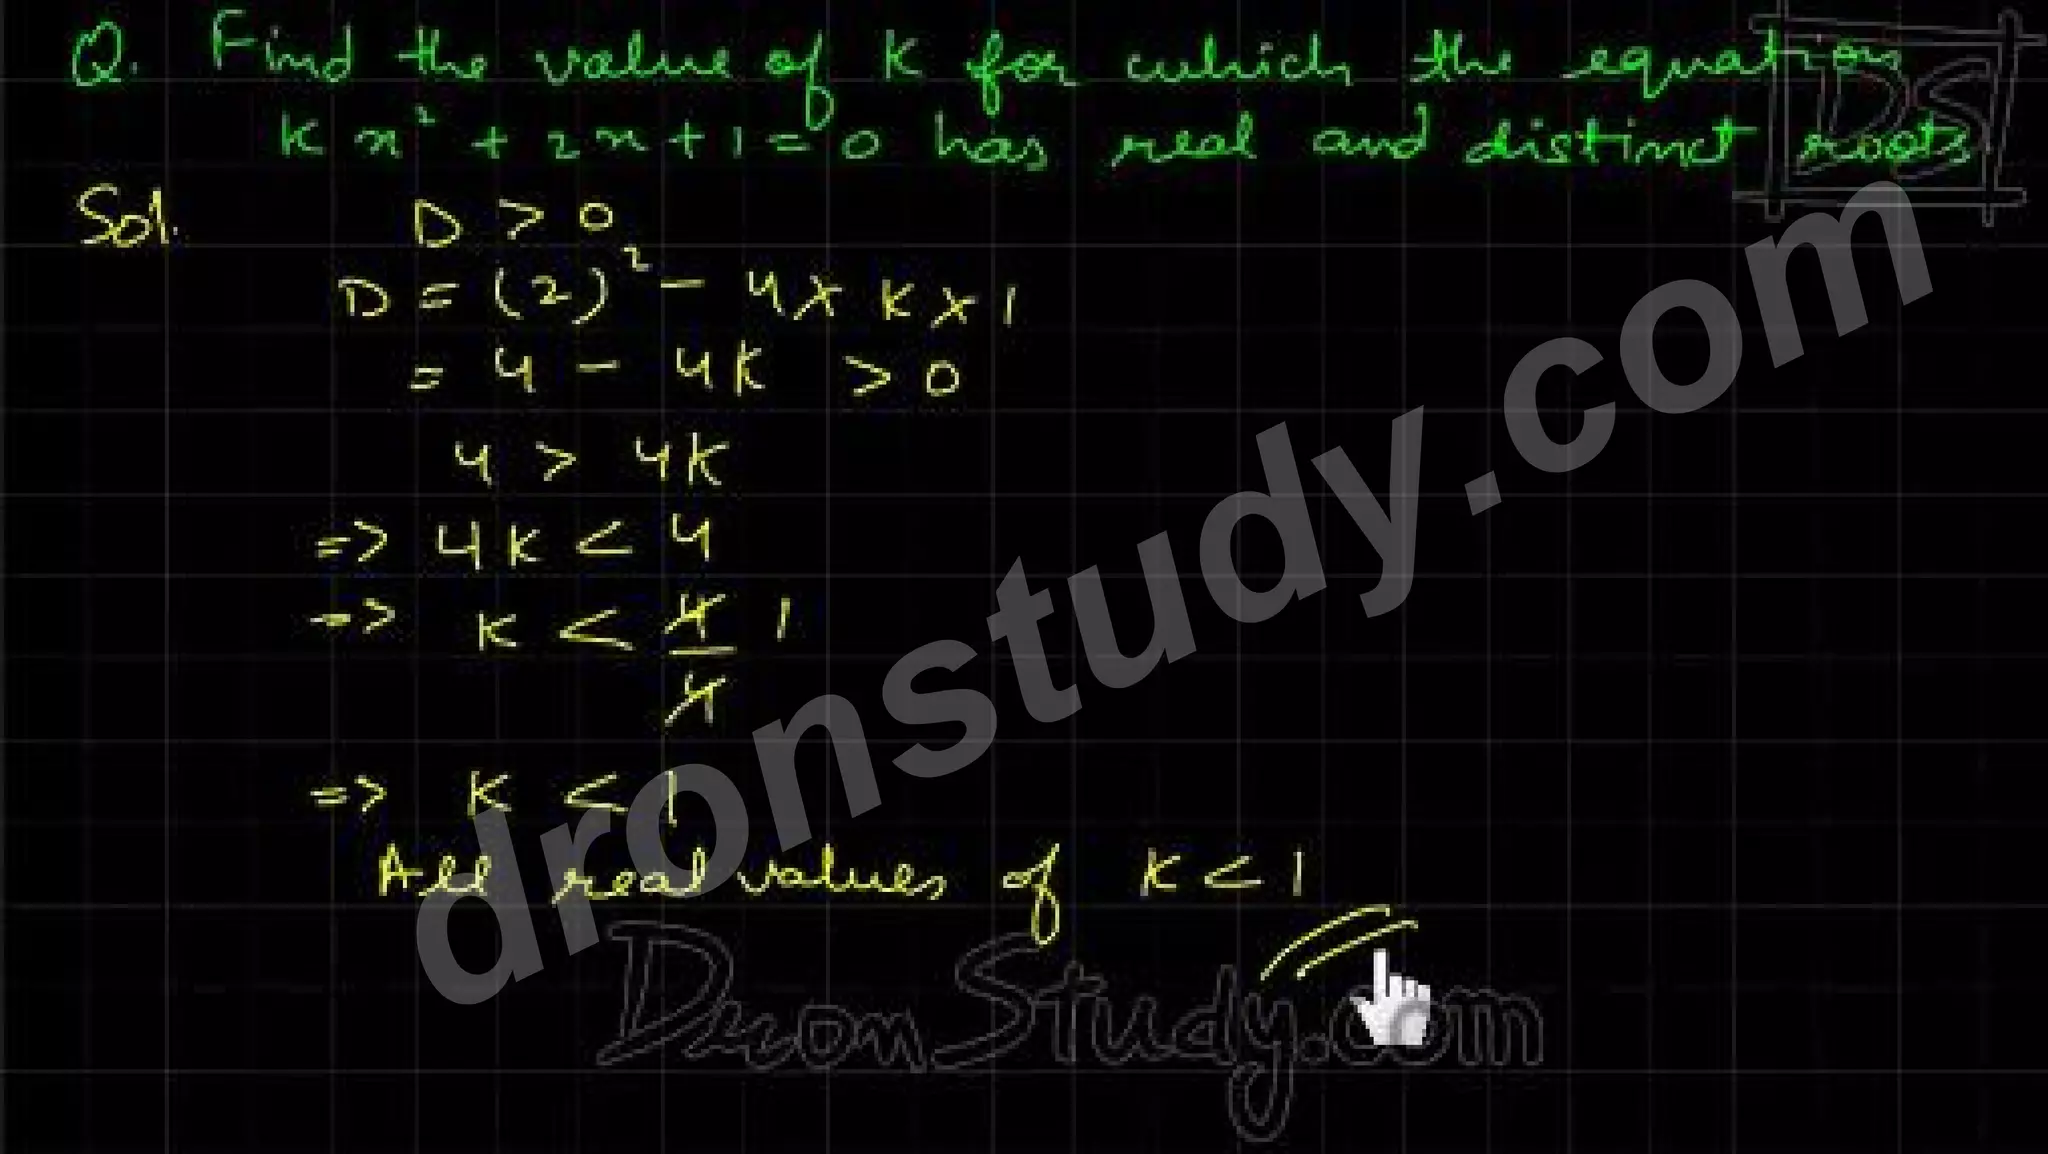 Q. Find the value of K for which the equation
K x² + 2x + 1 = 0 has real and distinct roots
DS
Sol. D > 0
D = (2)² - 4 × K × 1
= 4 - 4K > 0
4 > 4K
=> 4K < 4
=> K < 4/4 1
=> K < 1
All real values of K < 1
dronstudy.com
DronStudy.com